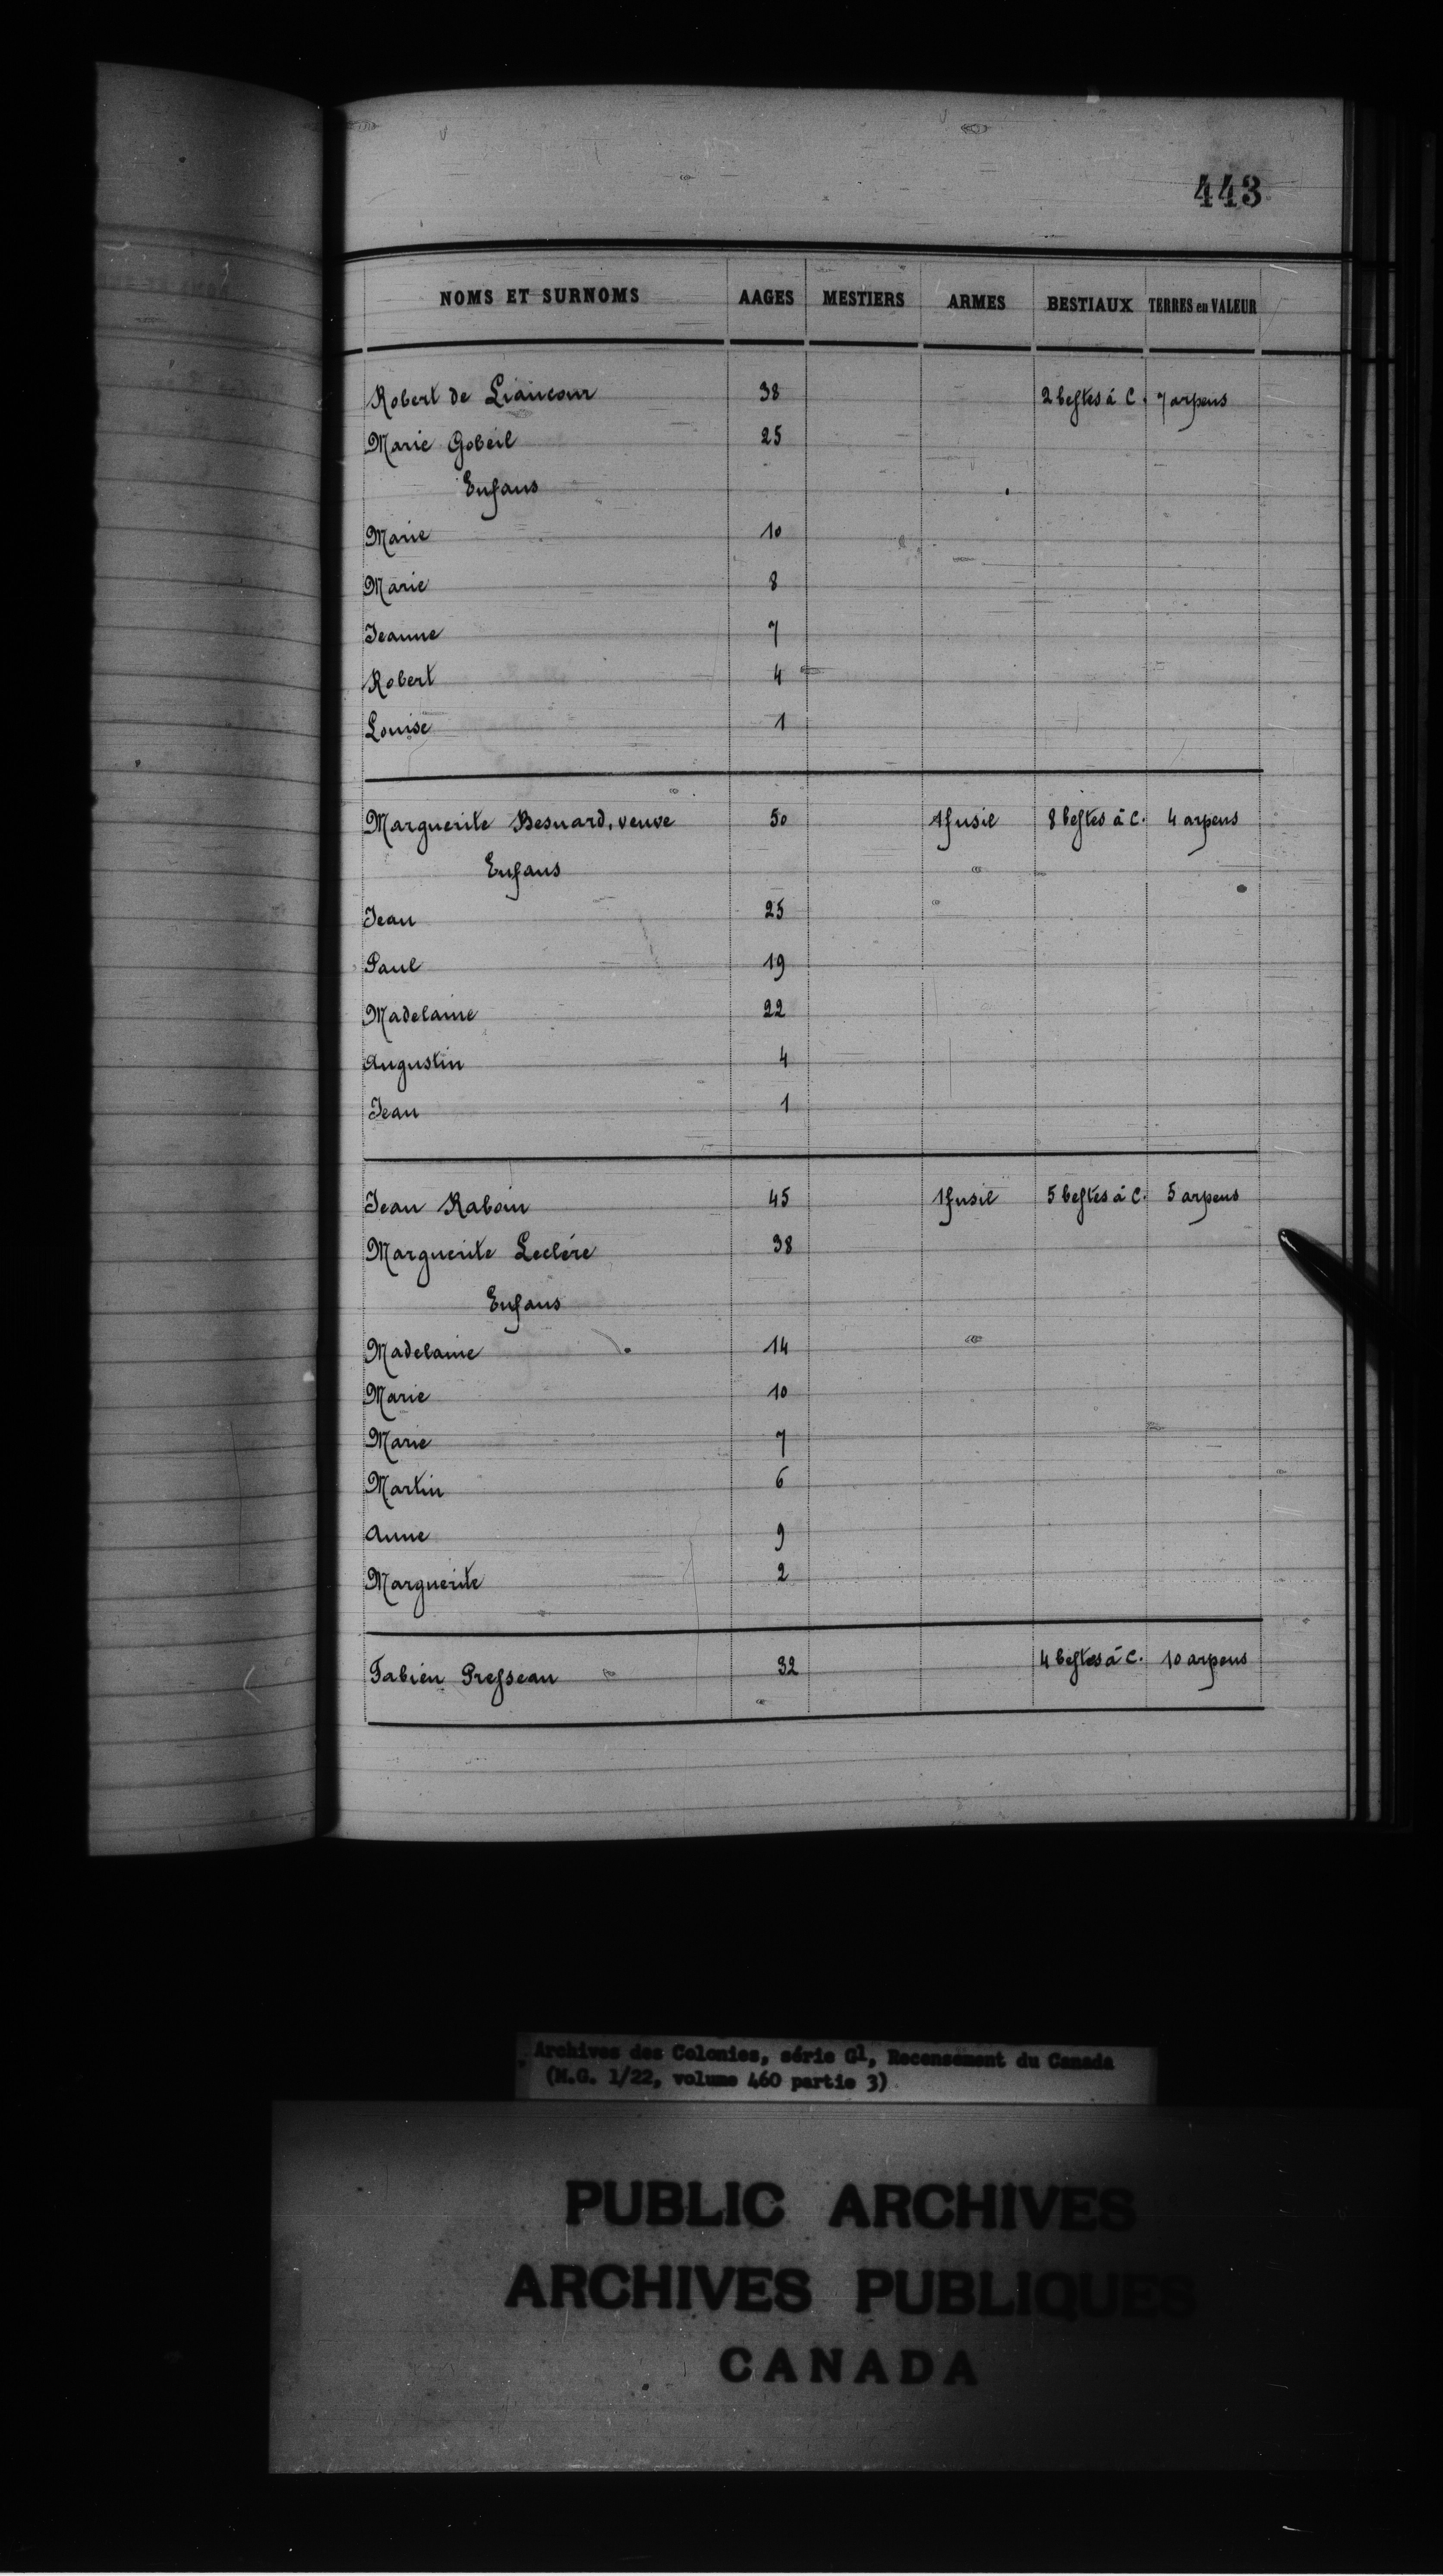 443
NOMS ET SURNOMS AAGES MESTIERS ARMES BESTIAUX TERRES en VALEUR
Robert de Liancour 38 2 bestes à C. 7 arpens
Marie Gobeil 25
Enfans
Marie 10
Marie 8
Jeanne 7
Robert 4
Louise 1
Marguerite Besnard, veuve 50 1 fusil 8 bestes à C. 4 arpens
Enfans
Jean 25
Paul 19
Madelaine 22
Augustin 4
Jean 1
Jean Raboin 45 1 fusil 5 bestes à C. 5 arpens
Marguerite Leclére 38
Enfans
Madelaine 14
Marie 10
Marie 7
Martin 6
Anne 9
Marguerite 2
Fabien Presseau 32 4 bestes à C. 10 arpens
Archives des Colonies, série G1, Recensement du Canada
(M.G. 1/22, volume 460 partie 3)
PUBLIC ARCHIVES
ARCHIVES PUBLIQUES
CANADA